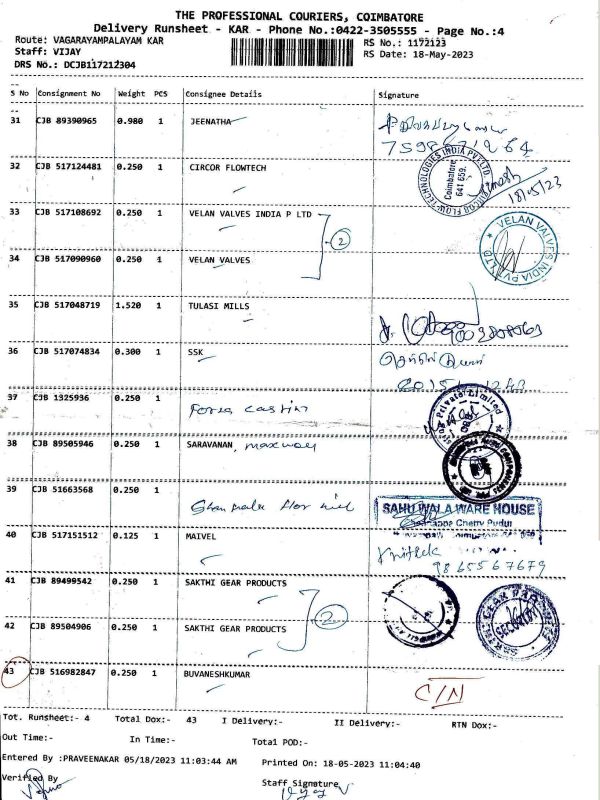 THE PROFESSIONAL COURIERS, COIMBATORE
Delivery Runsheet - KAR - Phone No.:0422-3505555 - Page No.:4
Route: VAGARAYAMPALAYAM KAR
RS No.: 1172123
Staff: VIJAY
RS Date: 18-May-2023
DRS No.: DCJB117212304
S No Consignment No Weight PCS Consignee Details Signature
31 CJB 89390965 0.980 1 JEENATHA
32 CJB 517124481 0.250 1 CIRCOR FLOWTECH
CIRCOR FLOW TECHNOLOGIES INDIA PVT LTD
Coimbatore
641 659.
18/05/23
33 CJB 517108692 0.250 1 VELAN VALVES INDIA P LTD
2
VELAN VALVES INDIA PVT LTD
34 CJB 517090960 0.250 1 VELAN VALVES
35 CJB 517048719 1.520 1 TULASI MILLS
36 CJB 517074834 0.300 1 SSK
37 CJB 1325936 0.250 1
Private Limited
38 CJB 89505946 0.250 1 SARAVANAN,
39 CJB 51663568 0.250 1
SAHUWALA WARE HOUSE
40 CJB 517151512 0.125 1 MAIVEL
9865567679
41 CJB 89499542 0.250 1 SAKTHI GEAR PRODUCTS
2
SECURITY
42 CJB 89504906 0.250 1 SAKTHI GEAR PRODUCTS
43 CJB 516982847 0.250 1 BUVANESHKUMAR
C/N
Tot. Runsheet:- 4 Total Dox:- 43 I Delivery:- II Delivery:- RTN Dox:-
Out Time:- In Time:- Total POD:-
Entered By :PRAVEENAKAR 05/18/2023 11:03:44 AM Printed On: 18-05-2023 11:04:40
Verified By Staff Signature
Vijay V